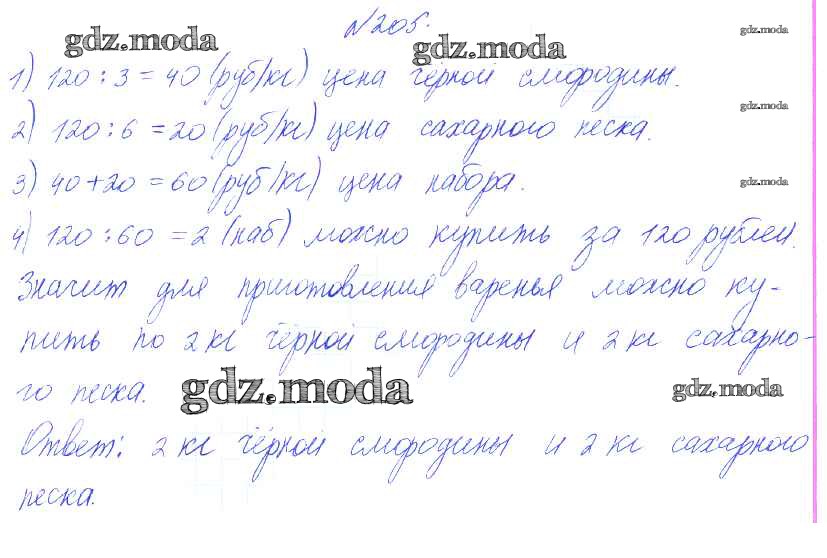 №205.
gdz.moda gdz.moda gdz.moda
1) 120 : 3 = 40 (руб/кг) цена чёрной смородины.
gdz.moda
2) 120 : 6 = 20 (руб/кг) цена сахарного песка.
3) 40 + 20 = 60 (руб/кг) цена набора.
gdz.moda
4) 120 : 60 = 2 (наб) можно купить за 120 рублей.
Значит для приготовления варенья можно ку-
пить по 2 кг чёрной смородины и 2 кг сахарно-
го песка.
gdz.moda gdz.moda
Ответ: 2 кг чёрной смородины и 2 кг сахарного
песка.